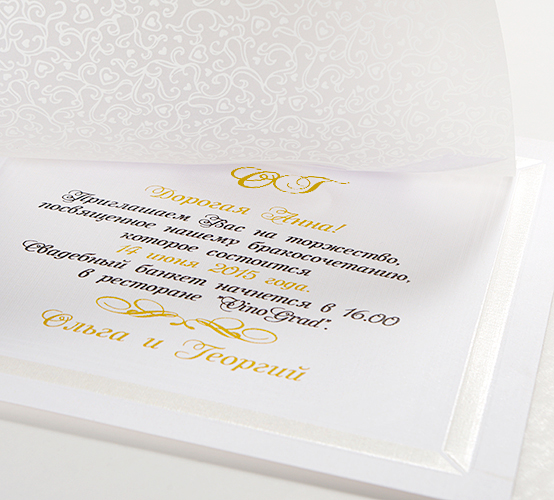 О Г
Дорогая Анна!
Приглашаем Вас на торжество,
посвященное нашему бракосочетанию,
которое состоится
14 июня 2015 года.
Свадебный банкет начнется в 16.00
в ресторане "VinoGrad".
Ольга и Георгий